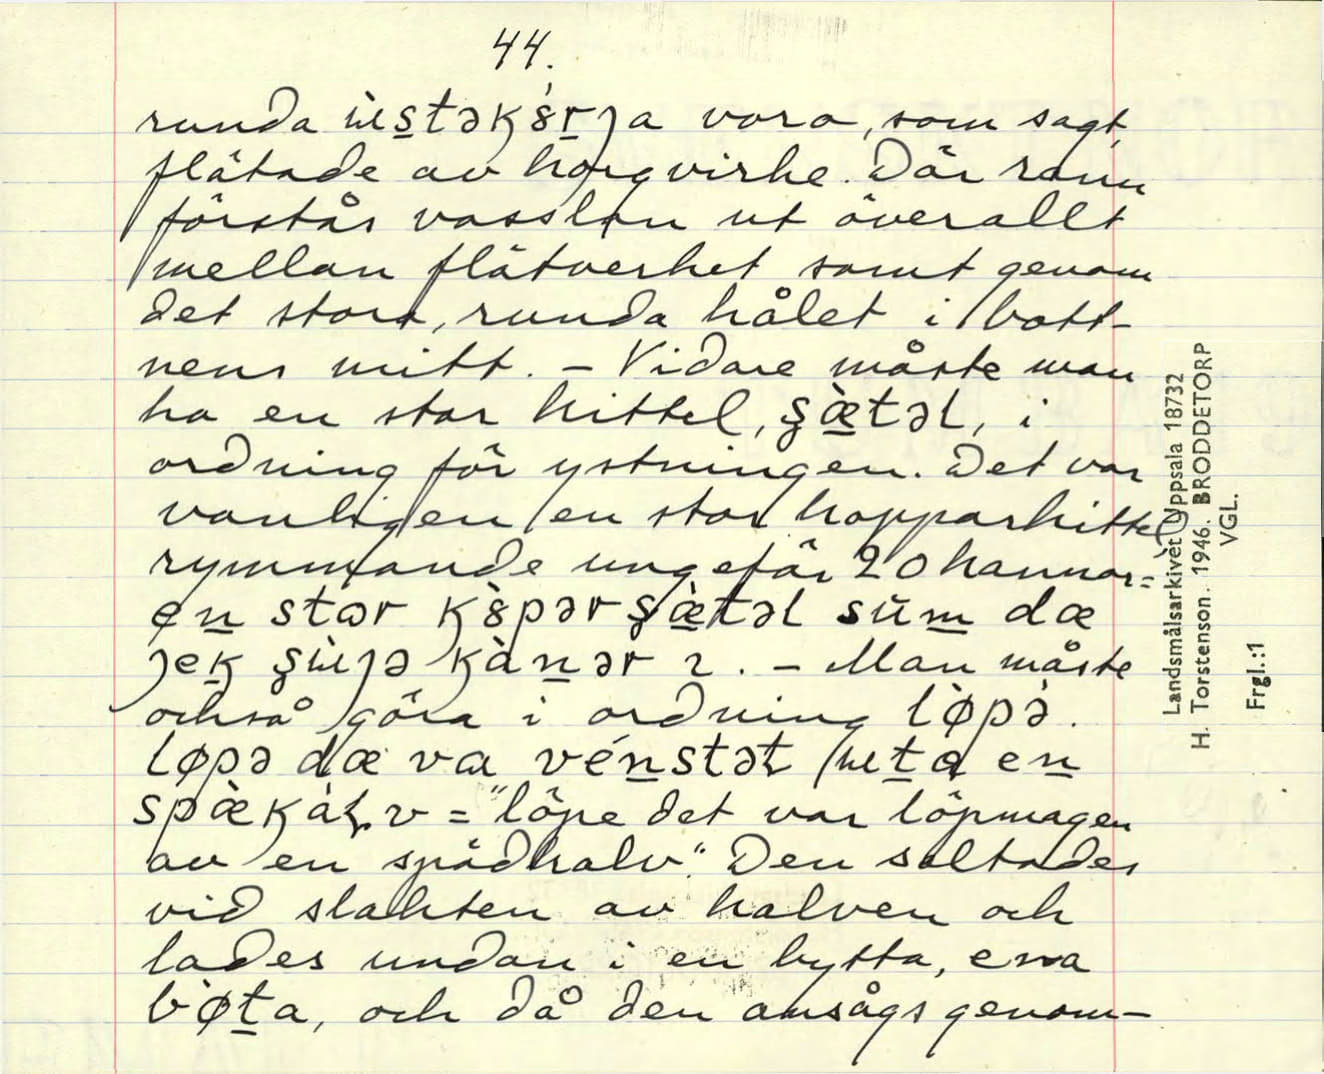 44.
runda ùs̲təkȣ̀r̲ȷa voro, som sagt,
flätade av horgvirke. Där rann
förstås vasslan ut överallt
mellan flätverket samt genom
det stora, runda hålet i bott-
nens mitt. – Vidare måste man
ha en stor kittel, ʂæ̲̀təl, i
ordning för ystningen. Det var
vanligen en stor kopparkittel
rymmande ungefär 20 kannor:
en̲ stɷr kȣ̀pərʂæ̲̀təl sŭm̲ dæ
ȷek̲ ʂùȷə kàn̲ər ı. – Man måste
också göra i ordning lø̀pə̀.
løpə dæ va vénstət ut̲a en̲
spæ̀kàɭv = "löpe det var löpmagen
av en spädkalv". Den saltades
vid slakten av kalven och
lades undan i en bytta, ena
bø̀t̲a, och då den ansågs genom-
Landsmålsarkivet Uppsala 18732
H. Torstenson. 1946. BRODDETORP
VGL.
Frgl.:1